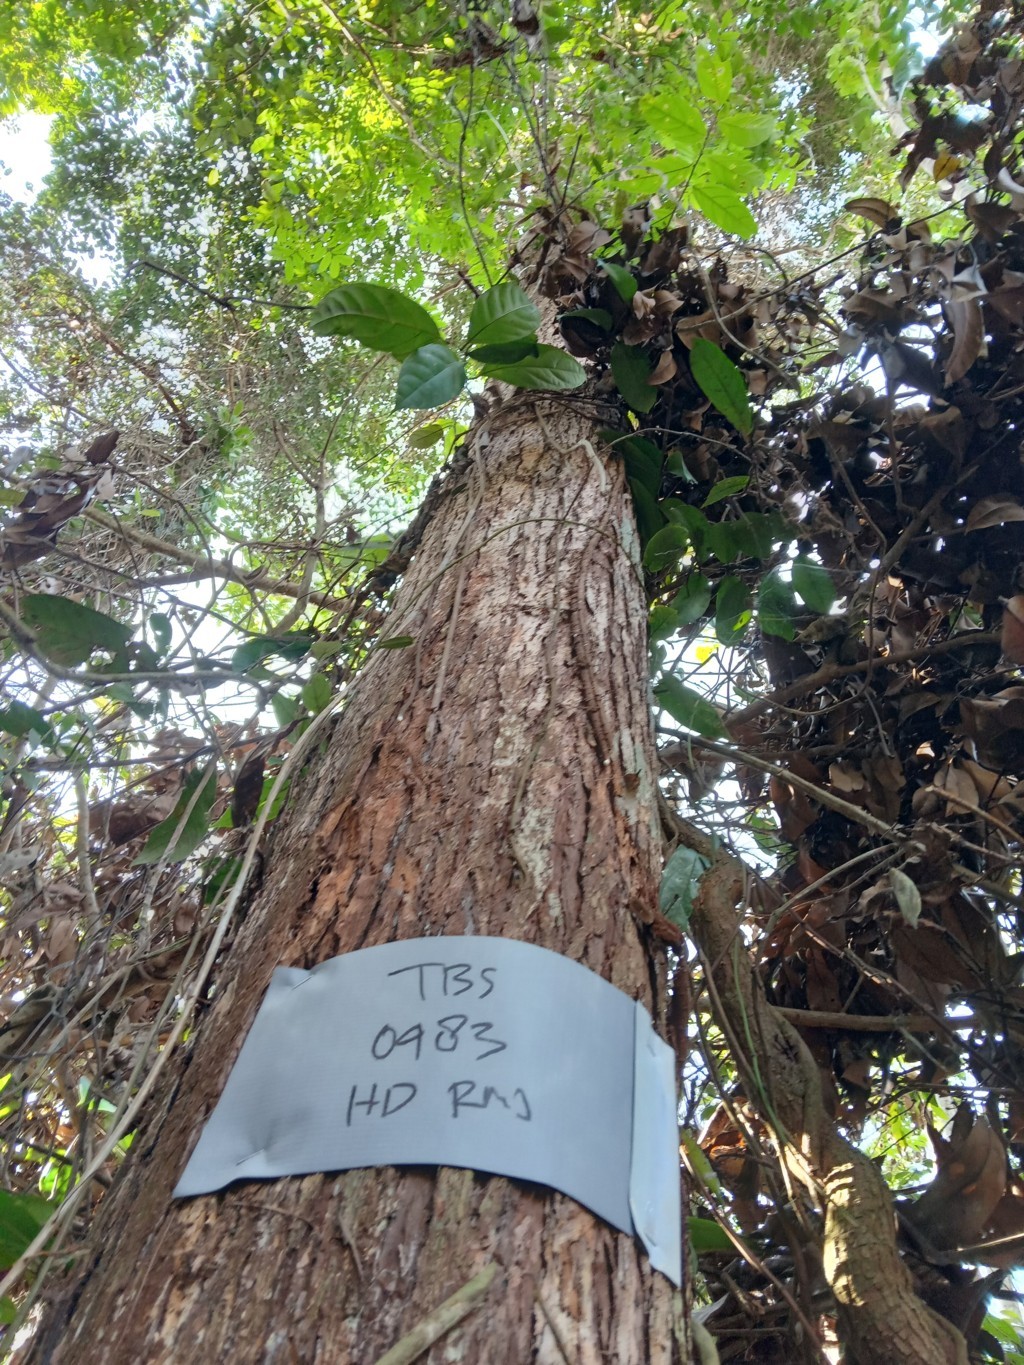 TBS
0983
HD RMJ